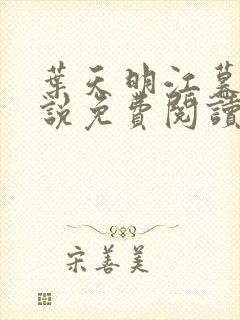 葉天明江慕
說免費閱讀
宋善美